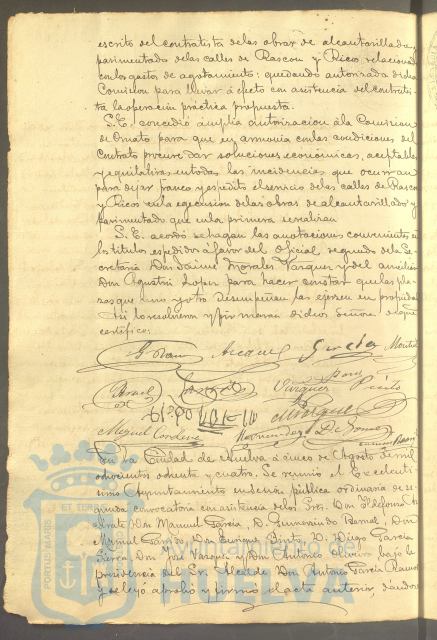 escrito del contratista de las obras de alcantarillado y
pavimentado de las calles de Rascon y Rico, relacionado
con los gastos de agotamiento: quedando autorizada dicha
Comision para llevar á efecto con asistencia del contratis-
ta la operacion práctica propuesta.
S.E. concedió amplia autorizacion á la Comision
de Ornato para que en armonia con las condiciones del
Contrato procure dar soluciones económicas, aceptables
y equitativas en todas las incidencias que ocurran
para dejar franco y espedito el servicio de las calles de Rascon
y Rico en la egecucion de las obras de alcantarillado y
pavimentado que en la primera se realizan
S.E. acordó se hagan las anotaciones convenientes en
los titulos espedidos á favor del Oficial segundo de la Se-
cretaria Don Jaime Morales Vazquez y del auxiliar
Don Agustin Lopez para hacer constar que las pla-
zas que uno y otro desempeñan las ejercen en propiedad
Asi lo resolvieron y firmaran dichos Señores de que
certifico.
Garcia
Vazquez Pinto
Miguel Cordero Hernandez
En la Ciudad de Huelva á cinco de Agosto de mil
ochocientos ochenta y cuatro. Se reunió el Excelenti-
simo Ayuntamiento en sesion pública ordinaria de se-
gunda convocatoria con asistencia de los Sres. Don Ildefonso
Don Manuel Garcia, D. Gumersindo Don
Manuel Garrido, Don Enrique Pinto, D. Diego Garcia
Don José Vazquez y Don Antonio bajo la
presidencia del Sr. Alcalde Don Antonio Garcia Ramos
y se leyó aprobó y firmó el acta anterior,
PORTUS MARIS ET TERRAE
Ayuntamiento de
HUELVA